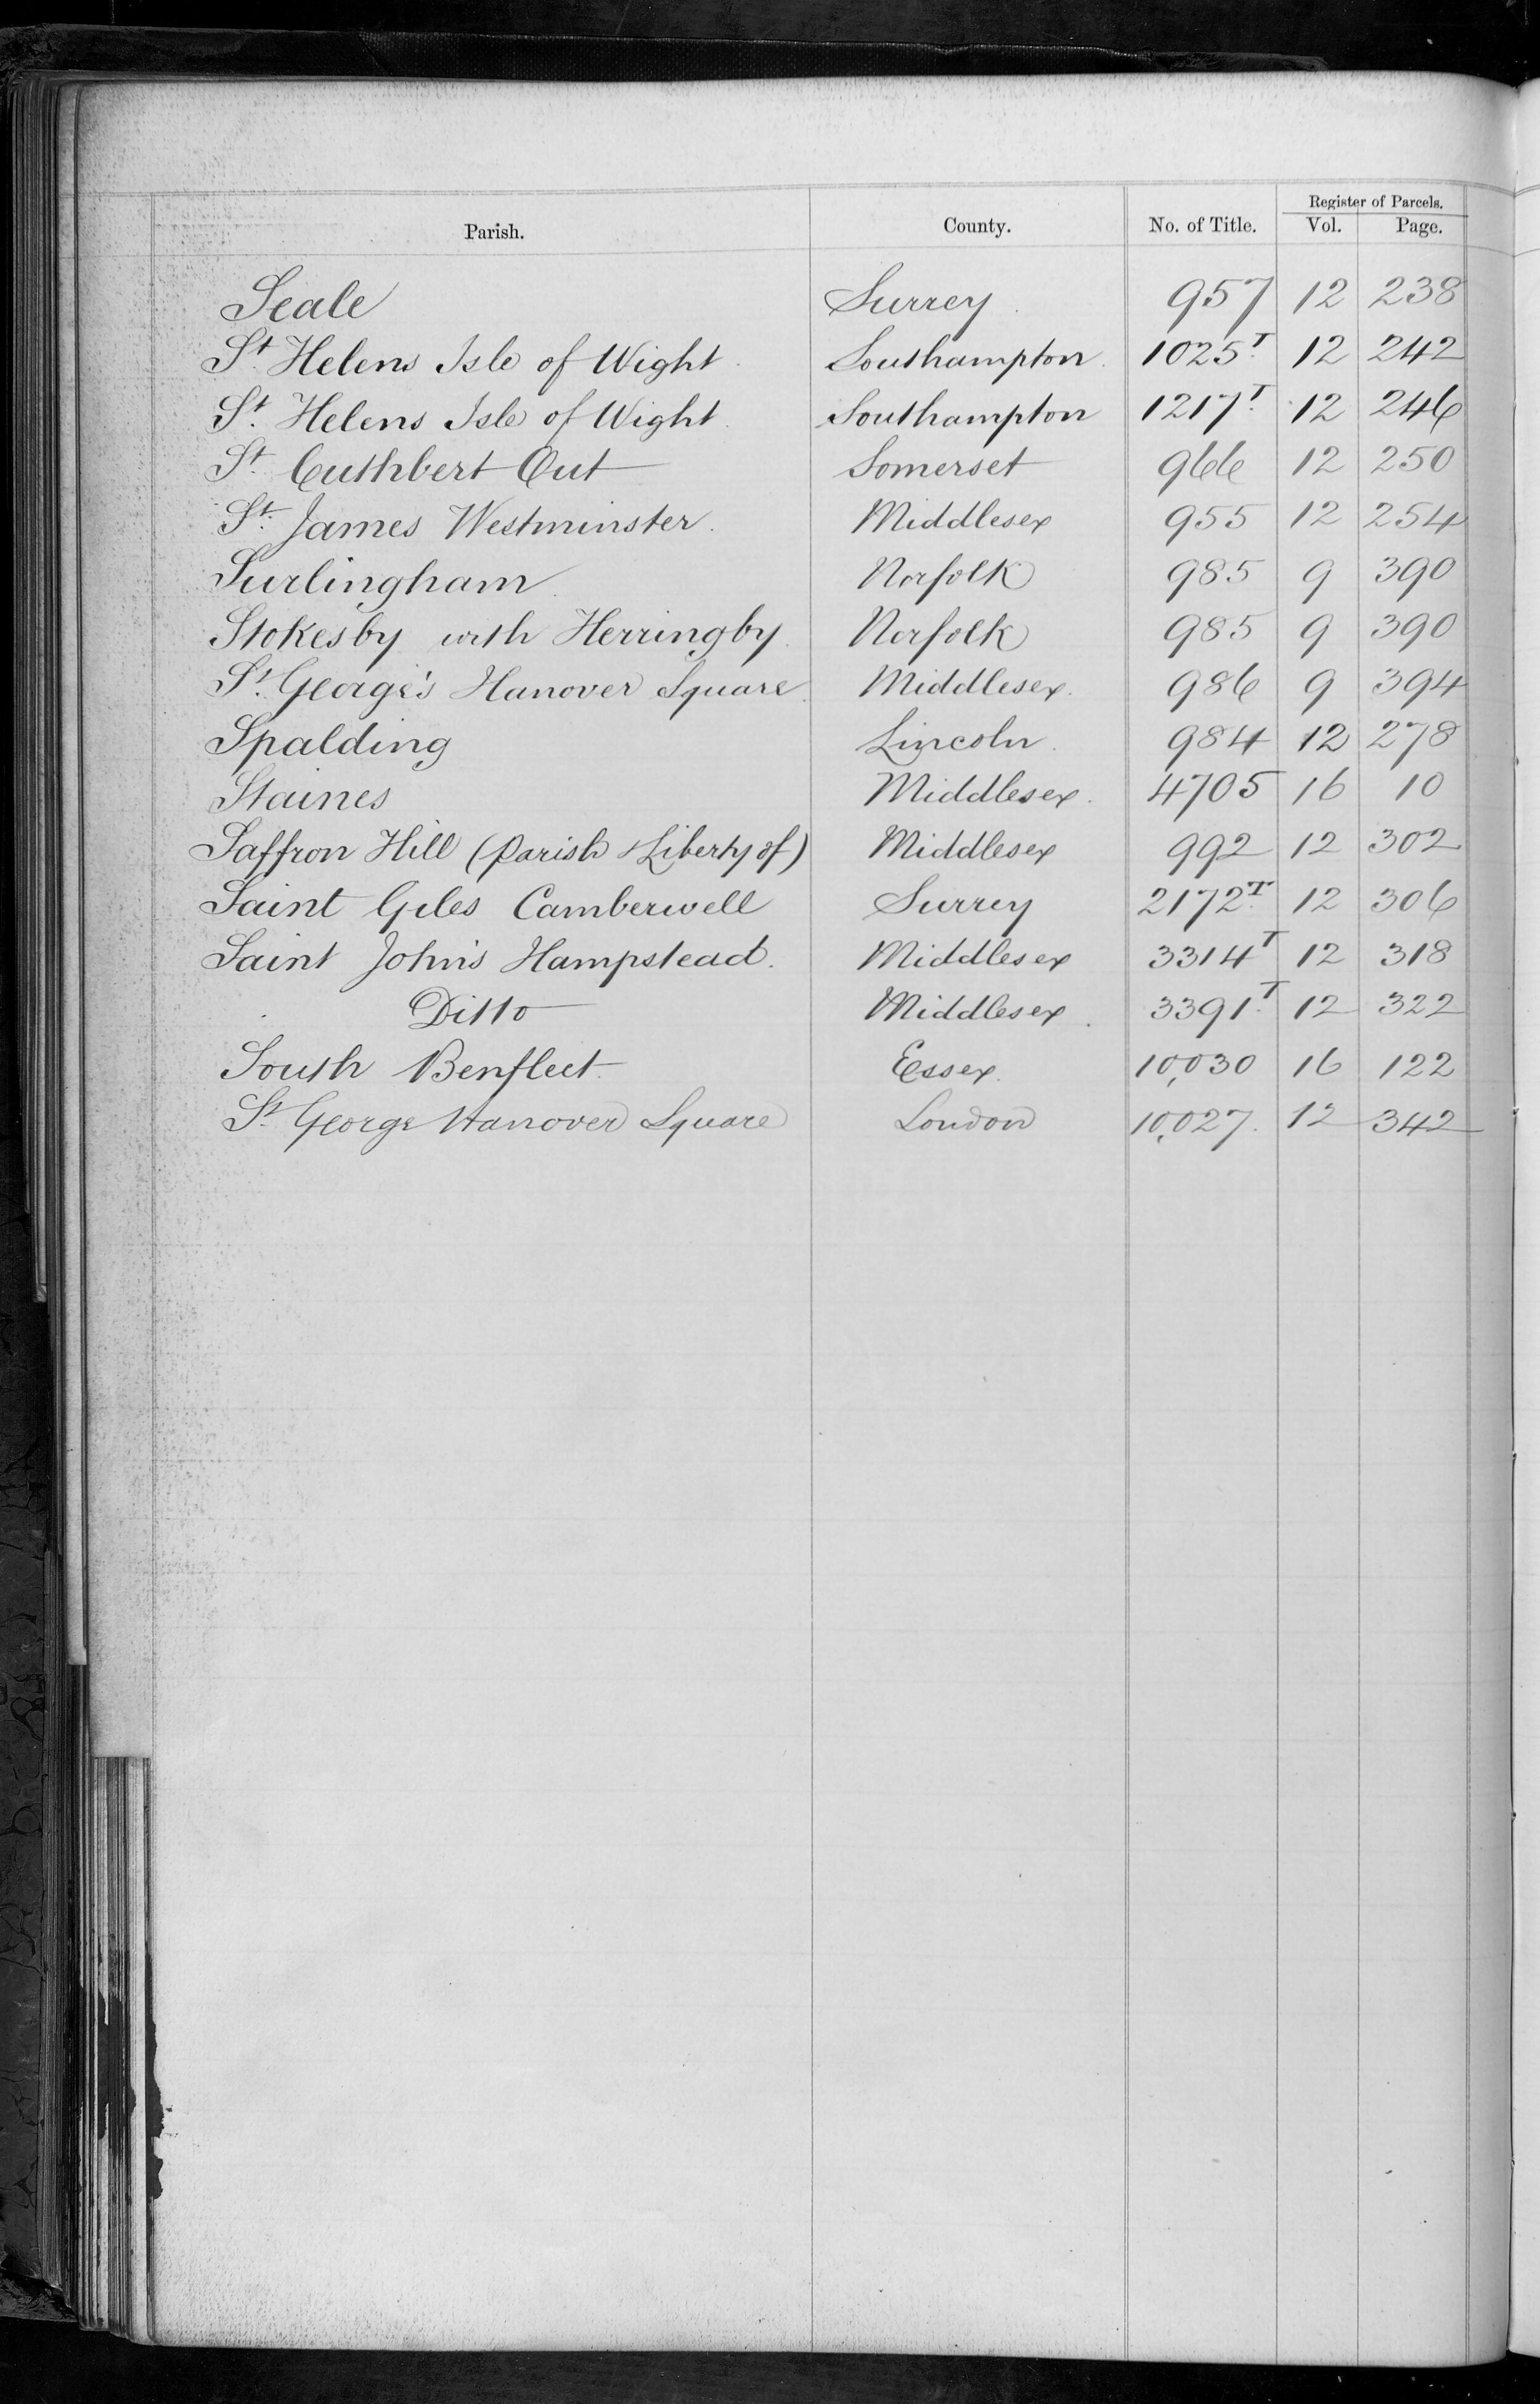 Register of Parcels.
Parish. County. No. of Title. Vol. Page.
Seale Surrey 957 12 238
St. Helens Isle of Wight Southampton 1025T 12 242
St. Helens Isle of Wight Southampton 1217T 12 246
St. Cuthbert Out Somerset 966 12 250
St. James Westminster Middlesex 955 12 254
Surlingham Norfolk 985 9 390
Stokesby with Herringby Norfolk 985 9 390
St. George's Hanover Square Middlesex 986 9 394
Spalding Lincoln 984 12 278
Staines Middlesex 4705 16 10
Saffron Hill (Parish & Liberty of) Middlesex 992 12 302
Saint Giles Camberwell Surrey 2172T 12 306
Saint John's Hampstead. Middlesex 3314T 12 318
Ditto Middlesex 3391T 12 322
South Benfleet Essex 10,030 16 122
St. George Hanover Square London 10,027 12 342